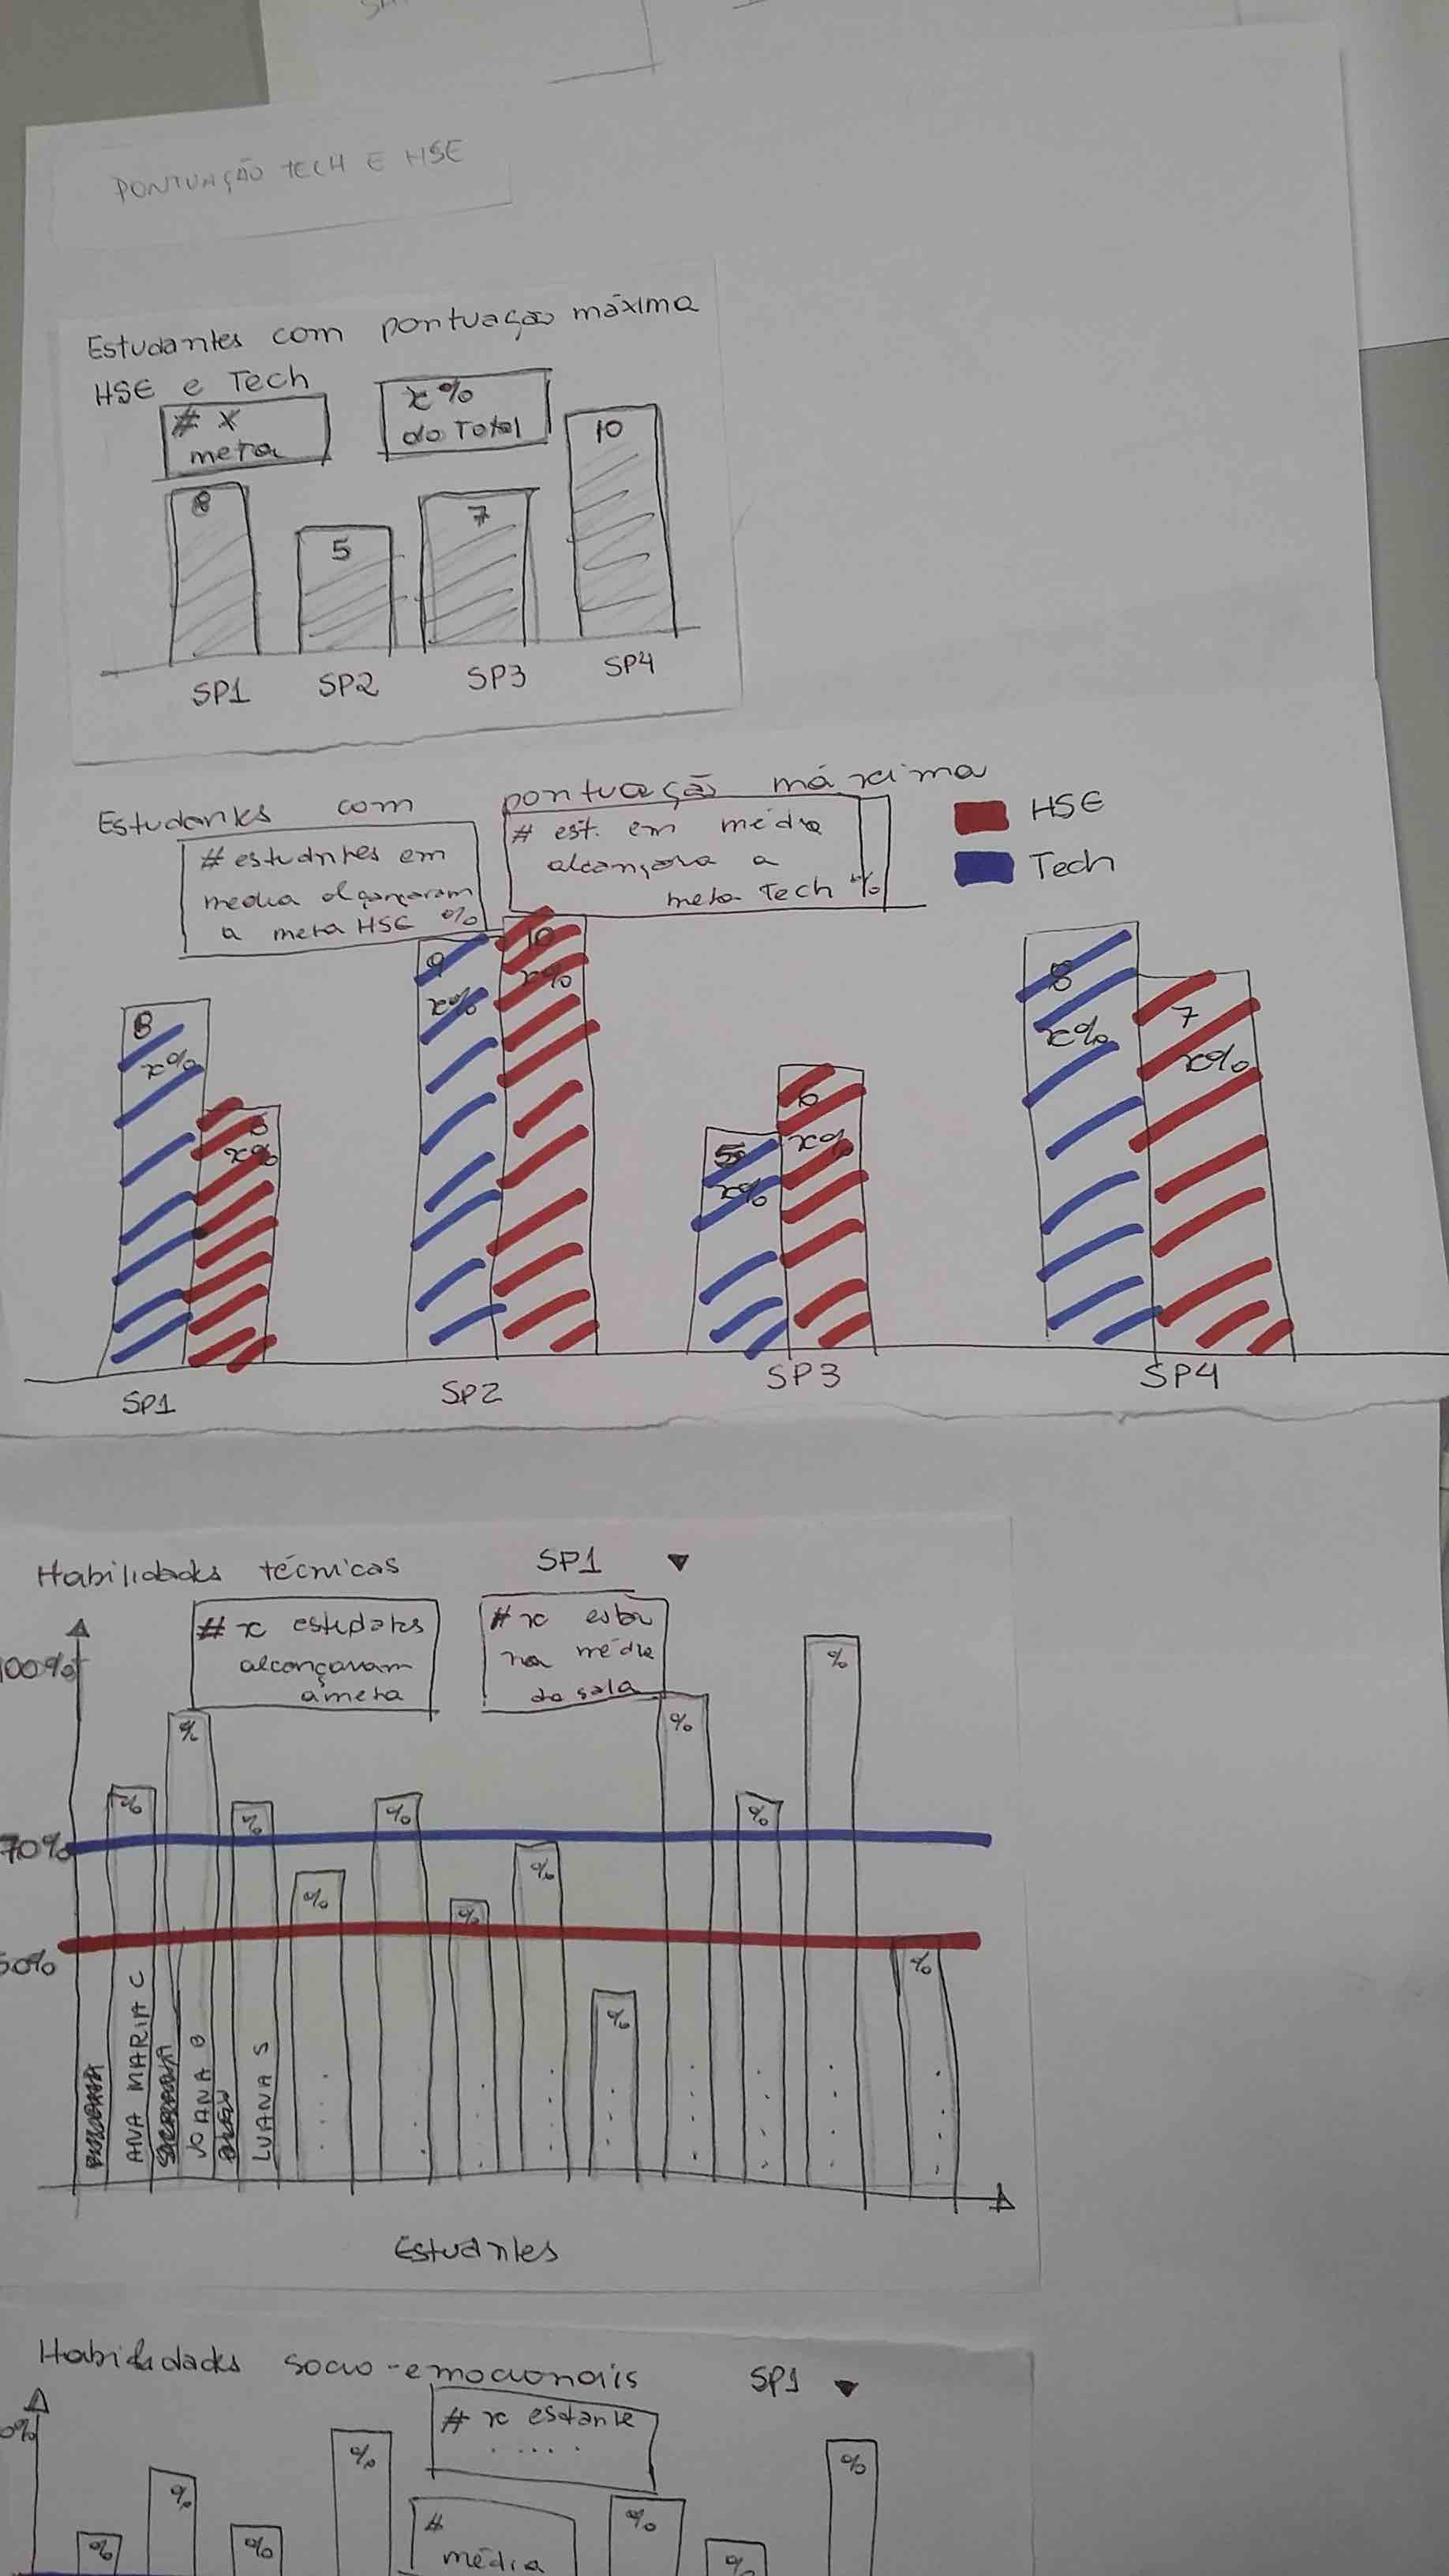 PONTUAÇÃO TECH E HSE
Estudantes com pontuação máxima
HSE e Tech
# X
meta
x%
do Total
8
5
7
10
SP1
SP2
SP3
SP4
Estudantes com pontuação máxima
# estudntes em
media alçançaram
a meta HSE %
# est. em média
alcançara a
meta Tech %
HSE
Tech
8
x%
6
x%
9
x%
10
x%
5
x%
6
x%
8
x%
7
x%
SP1
SP2
SP3
SP4
Habilidades técnicas
SP1
# x estudates
alcançaram
a meta
# x
na média
da sala
100%
70%
50%
%
%
%
%
%
%
%
%
%
%
%
%
ANA MARIA C
JOANA B
LUANA S
Estudantes
Habilidades socio-emocionais
SP1
# x estante
....
#
média
0%
%
%
%
%
%
%
%